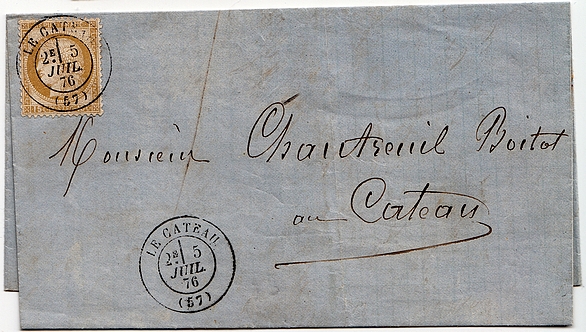 LE CAT
2E 5
JUIL.
76
(57)
15
Monsieur Chantreuil Boitot
au Cateau
LE CATEAU
2E 5
JUIL.
76
(57)